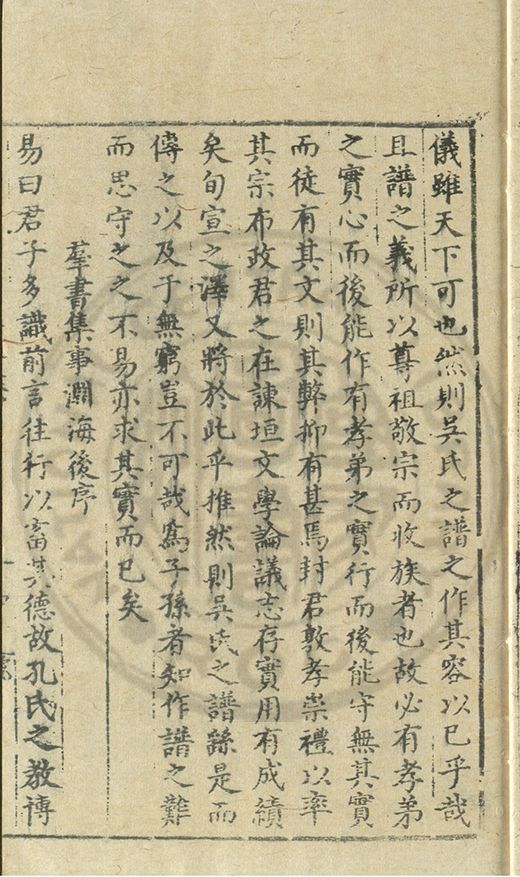 儀雖天下可也然則吳氏之譜之作其容以已乎哉
且譜之義所以尊祖敬宗而收族者也故必有孝弟
之實心而後能作有孝弟之實行而後能守無其實
而徒有其文則其弊抑有甚焉封君敦孝崇禮以率
其宗布政君之在諫垣文學論議志存實用有成績
矣旬宣之澤又將於此乎推然則吳氏之譜繇是而
傳之以及于無窮豈不可哉為子孫者知作譜之難
而思守之之不易亦求其實而已矣
羣書集事淵海後序
易曰君子多識前言往行以畜其德故孔氏之教博